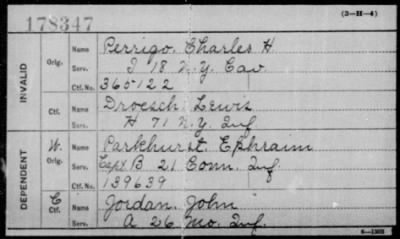 178347
(3-H-4)
INVALID
Orig.
Name Perrigo, Charles H
Serv. I 18 N.Y. Cav
Ctf. No. 365122
Ctf.
Name Droesch Lewis
Serv. H 71 N.Y. Inf.
DEPENDENT
W. Orig.
Name Parkhurst, Ephraim
Serv. Capt B 21 Conn. Inf.
Ctf. No. 139639
C Ctf.
Name Jordan, John
Serv. A 26 Mo. Inf.